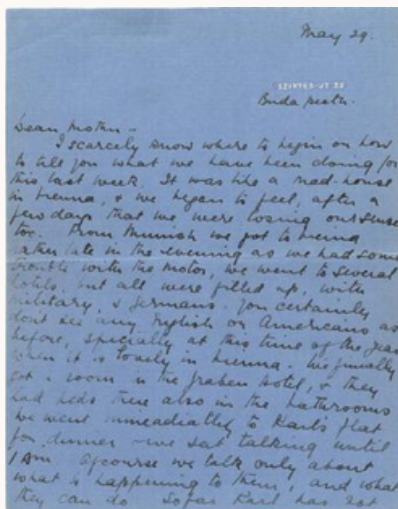 May 29.
Buda pesth.
Dear Mother -
I scarcely know where to begin or how
to tell you what we have been doing for
this last week. It was like a mad-house
in Vienna, & we began to feel, after a
few days that we were losing our senses
too. From Munich we got to Vienna
rather late in the evening as we had some
trouble with the motor, we went to several
hotels, but all were filled up, with
military, & Germans. You certainly
don't see any English or Americans as
before, specially at this time of the year
when it is lovely in Vienna. We finally
got a room in the Graben hotel, & they
had beds there also in the bathrooms
We went immediatly to Karl's flat
for dinner - we sat talking until
1 am. Ofcourse we talk only about
what is happening to them, and what
they can do. Sofar Karl has not